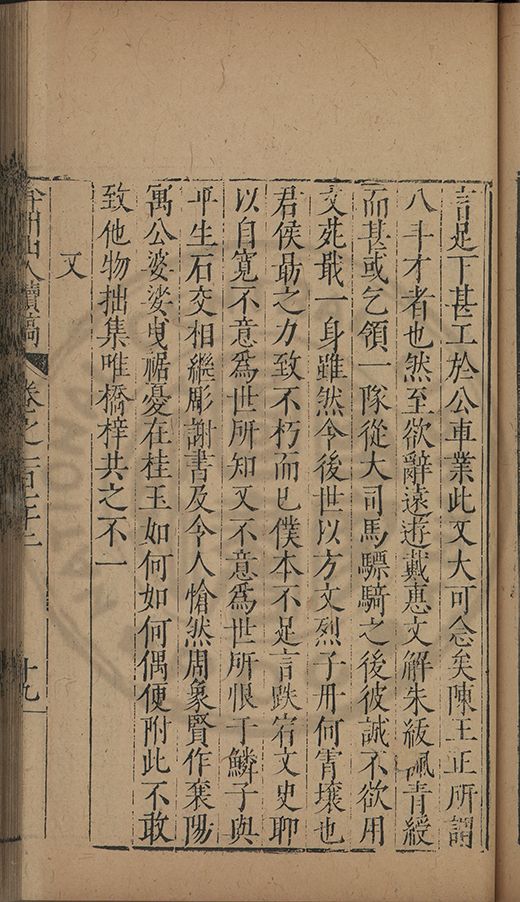 言足下甚工於公車業此又大可念矣陳王正所謂
八斗才者也然至欲辭遠遊戴惠文解朱紱珮青綬
而甚或乞領一隊從大司馬驃騎之後彼誠不欲用
文死戢一身雖然令後世以方文烈子丹何霄壤也
君侯勗之力致不朽而已僕本不足言跌宕文史聊
以自寬不意為世所知又不意為世所恨于鱗子與
平生石交相繼彫謝書及令人愴然周象賢作襄陽
寓公婆娑曳裾憂在桂玉如何如何偶便附此不敢
致他物拙集唯橋梓共之不一
又
弇州山人續稿
卷之一百
十九